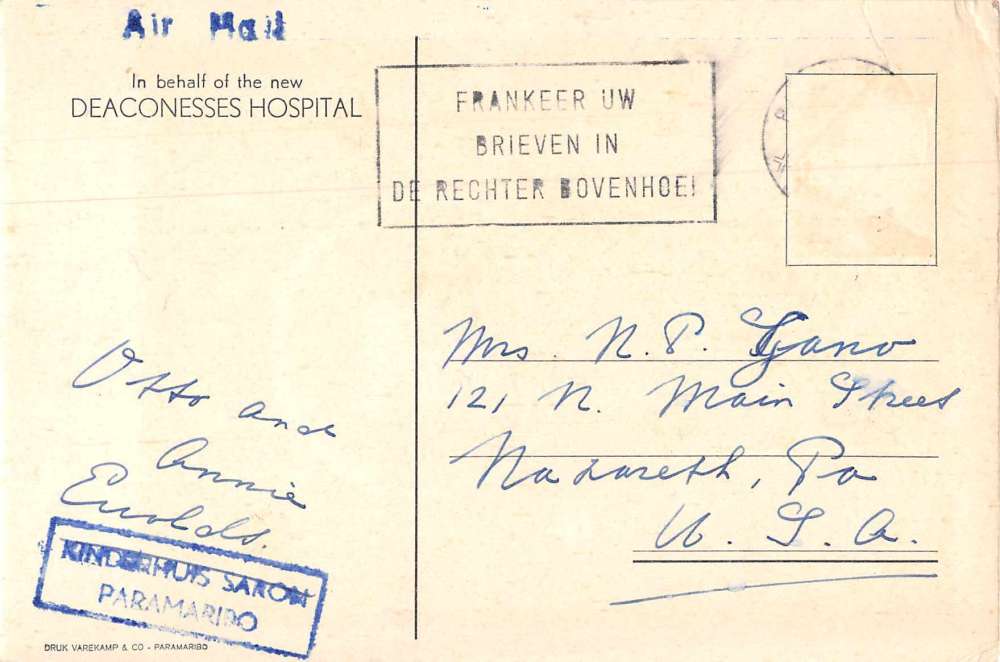 Air Mail
In behalf of the new
DEACONESSES HOSPITAL
FRANKEER UW
BRIEVEN IN
DE RECHTER BOVENHOEK
Mrs. N. P. Gano
121 N. Main Street
Nazareth, Pa
U. S. A.
Otto and
Annie
Ewolds.
KINDERHUIS SARON
PARAMARIBO
DRUK VAREKAMP & CO - PARAMARIBO